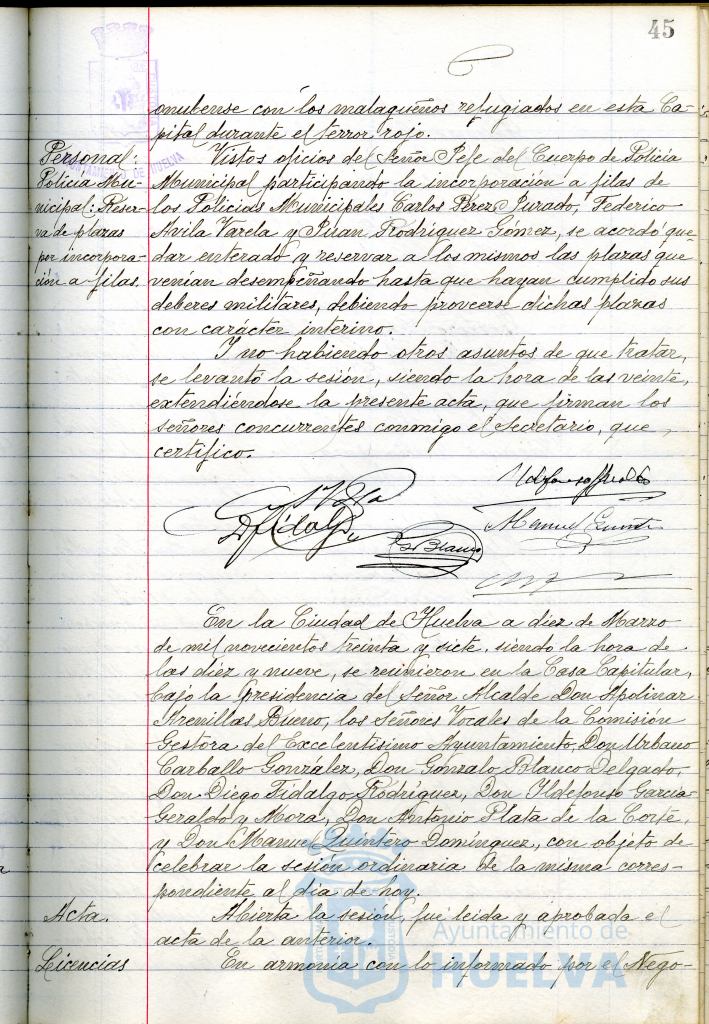 45
onubense con los malagueños refugiados en esta Ca-
pital durante el terror rojo.
Personal:
Policía Mu-
nicipal: Reser-
va de plazas
por incorpora-
ción a filas.
Vistos oficios del Señor Jefe del Cuerpo de Policía
Municipal participando la incorporación a filas de
los Policías Municipales Carlos Pérez Jurado, Federico
Avila Varela y Juan Rodríguez Gómez, se acordó que-
dar enterado y reservar a los mismos las plazas que
venían desempeñando hasta que hayan cumplido sus
deberes militares, debiendo proveerse dichas plazas
con carácter interino.
Y no habiendo otros asuntos de que tratar,
se levantó la sesión, siendo la hora de las veinte,
extendiéndose la presente acta, que firman los
señores concurrentes conmigo el Secretario, que
certifico.
D Fidalgo
Blanco
Manuel
En la Ciudad de Huelva a diez de Marzo
de mil novecientos treinta y siete, siendo la hora de
las diez y nueve, se reunieron en la Casa Capitular,
bajo la presidencia del Señor Alcalde Don Apolinar
Arenillas Bueno, los Señores Vocales de la Comisión
Gestora del Excelentísimo Ayuntamiento, Don Urbano
Carballo González, Don Gonzalo Blanco Delgado,
Don Diego Fidalgo Rodríguez, Don Ildefonso García-
Geraldo y Mora, Don Antonio Plata de la Corte,
y Don Manuel Quintero Domínguez, con objeto de
celebrar la sesión ordinaria de la misma corres-
pondiente al día de hoy.
Acta.
Abierta la sesión, fué leída y aprobada el
acta de la anterior.
Licencias
En armonía con lo informado por el Nego-
Ayuntamiento de
HUELVA